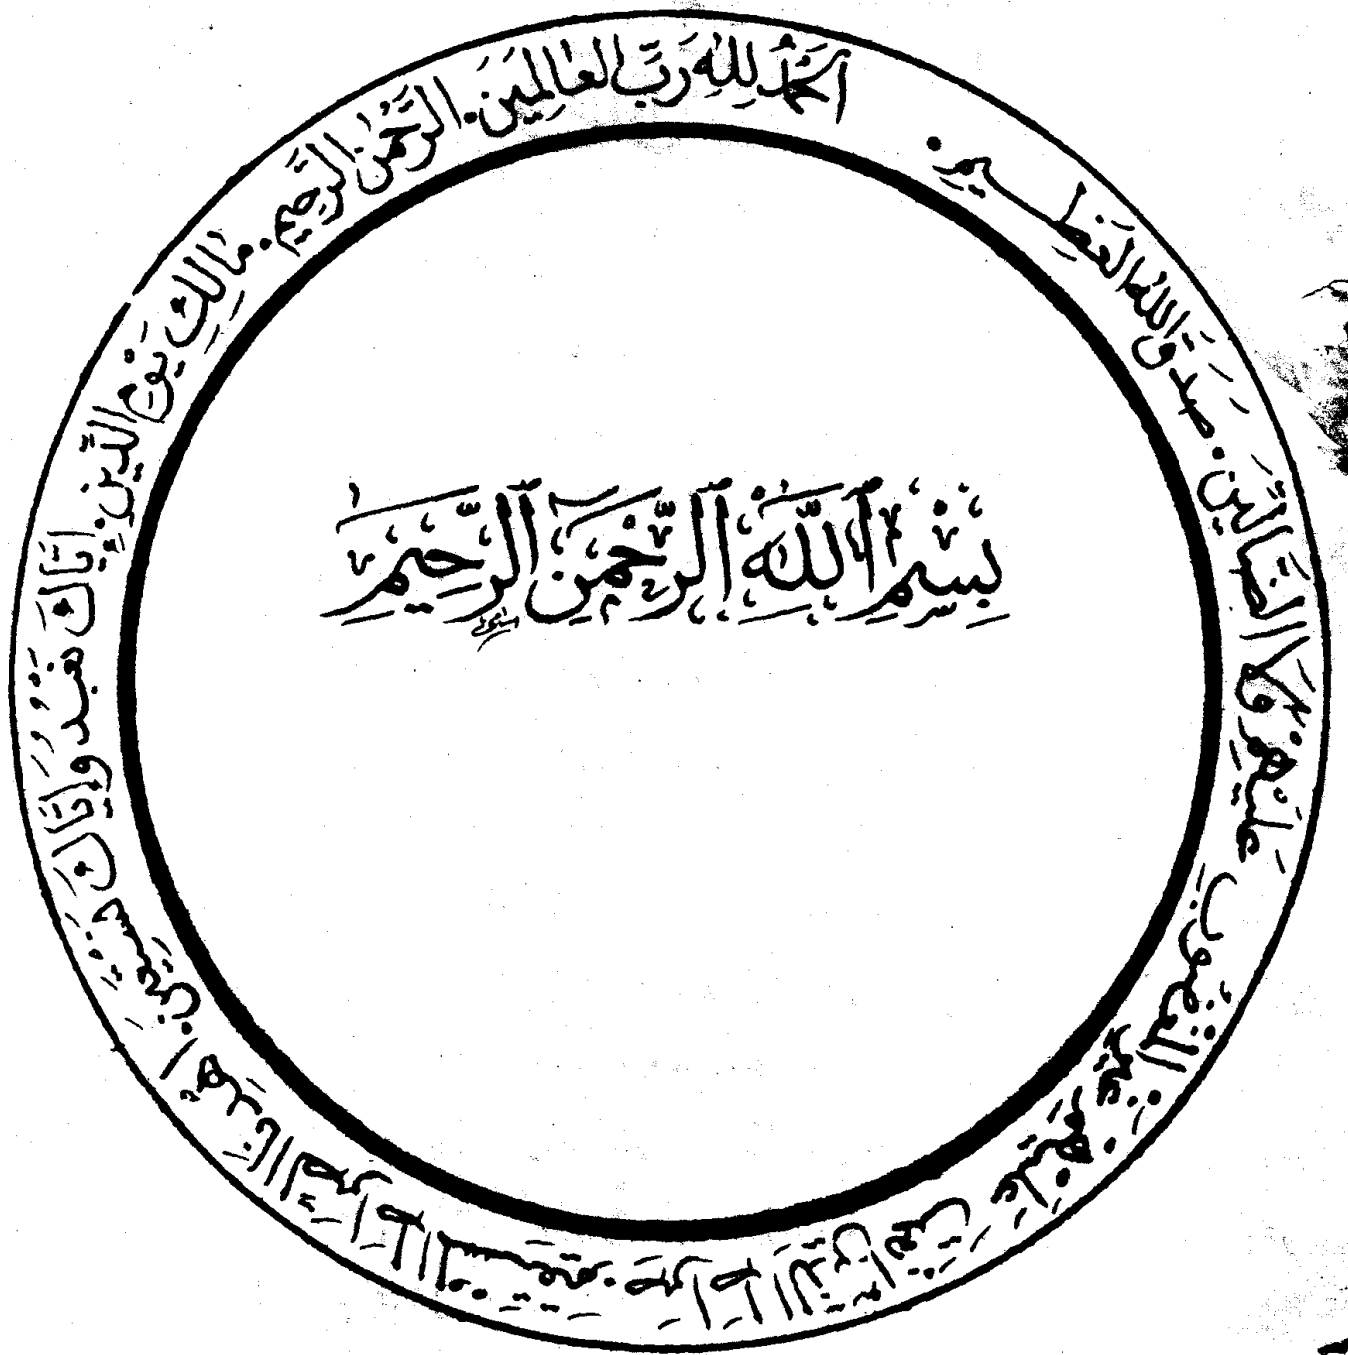 بِسْمِ ٱللَّهِ ٱلرَّحْمَٰنِ ٱلرَّحِيمِ
اَلْحَمْدُ لِلّٰهِ رَبِّ الْعَالَمِينَ. الرَّحْمٰنِ الرَّحِيمِ. مَالِكِ يَوْمِ الدِّينِ. إِيَّاكَ نَعْبُدُ وَإِيَّاكَ نَسْتَعِينُ. اهْدِنَا الصِّرَاطَ الْمُسْتَقِيمَ. صِرَاطَ الَّذِينَ أَنْعَمْتَ عَلَيْهِمْ غَيْرِ الْمَغْضُوبِ عَلَيْهِمْ وَلَا الضَّالِّينَ. صَدَقَ اللهُ الْعَظِيمِ.